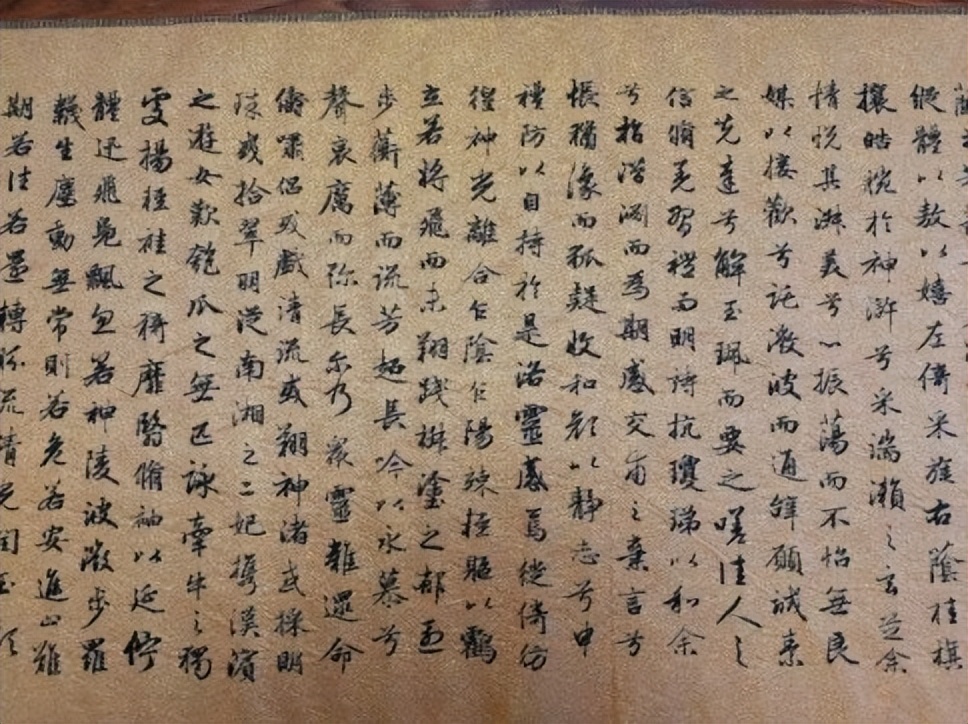 縱體以敖以嬉左倚采旄右蔭桂旗
攘皓腕於神滸兮采湍瀨之玄芝余
情悅其淑美兮心振蕩而不怡無良
媒以接歡兮託微波而通辭願誠素
之先達兮解玉珮而要之嗟佳人之
信脩羌習禮而明詩抗瓊珶以和余
兮指潛淵而為期感交甫之棄言兮
悵猶豫而狐疑收和顏以靜志兮申
禮防以自持於是洛靈感焉徙倚彷
徨神光離合乍陰乍陽竦輕軀以鶴
立若將飛而未翔踐椒塗之郁烈
步蘅薄而流芳超長吟以永慕兮
聲哀厲而彌長爾乃眾靈雜遝命
儔嘯侶或戲清流或翔神渚或採明
珠或拾翠羽從南湘之二妃攜漢濱
之遊女歎匏瓜之無匹詠牽牛之獨
處揚輕袿之猗靡翳脩袖以延佇
體迅飛鳧飄忽若神陵波微步羅
襪生塵動無常則若危若安進止難
期若往若還轉眄流精光潤玉